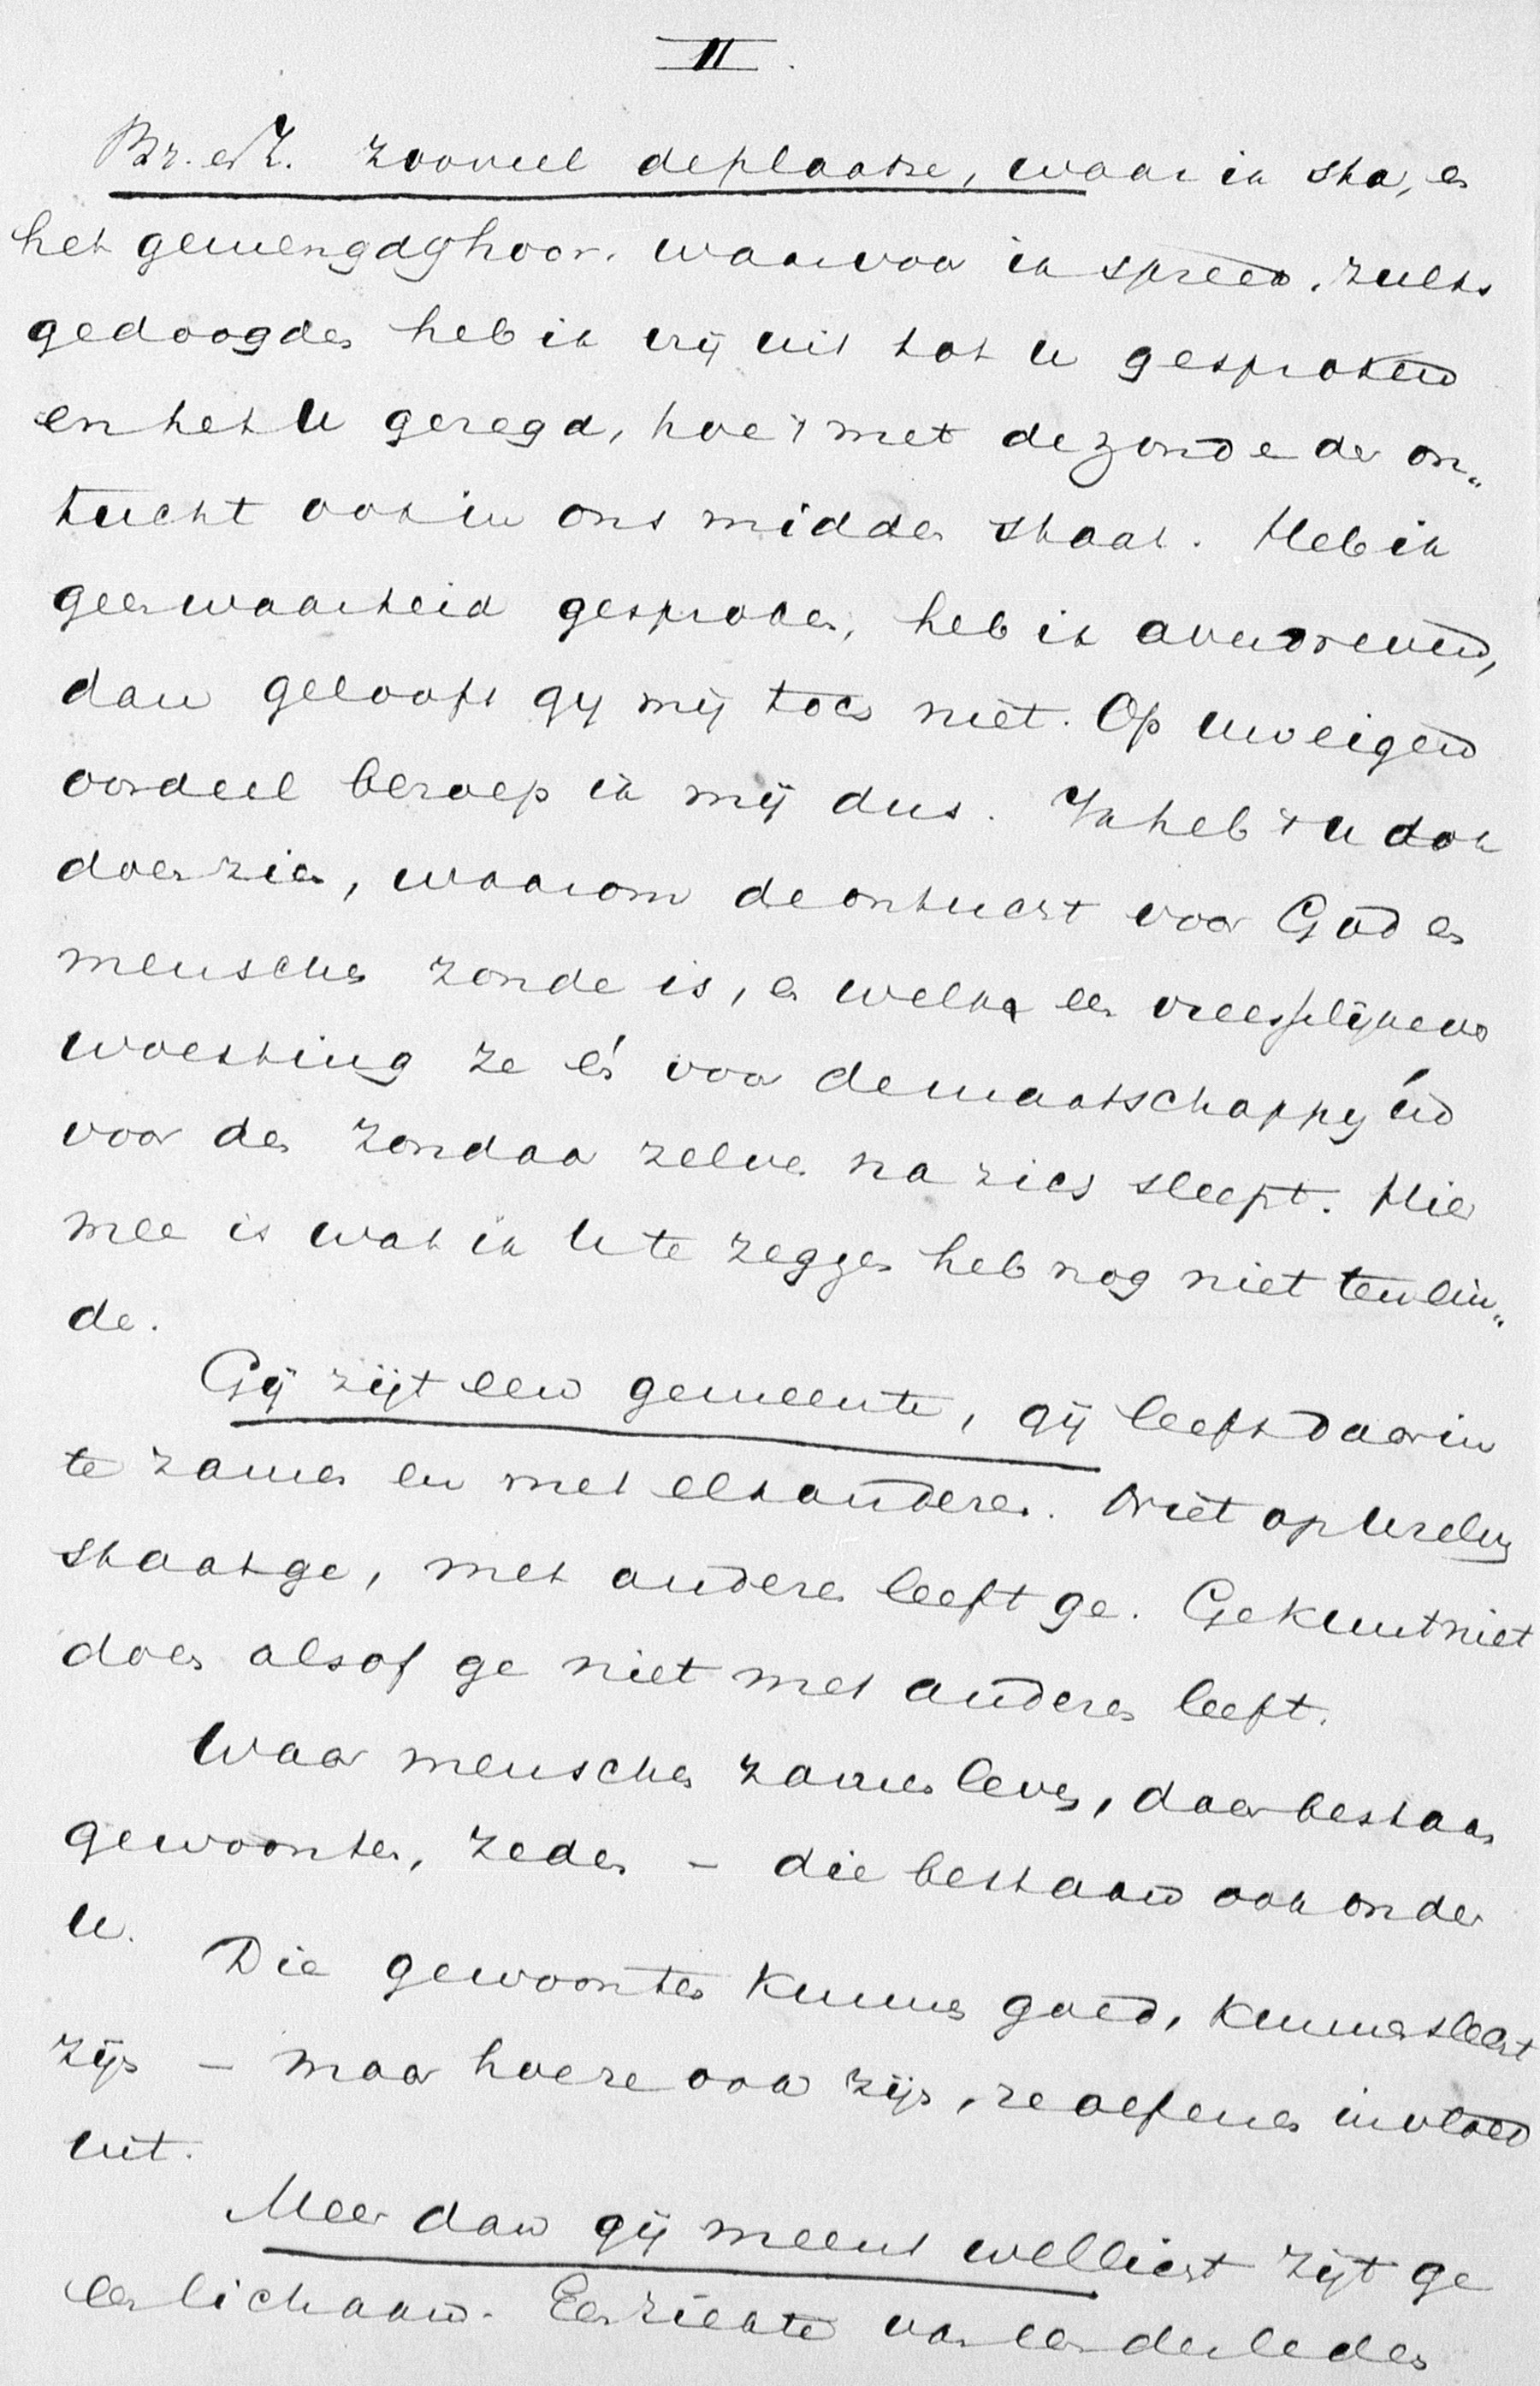 II.
Br. en Z. zooveel de plaatse, waar ik sta, en
het gemengd gehoor, waarvoor ik spreek, zulks
gedoogden heb ik vrij uit tot u gesproken
en het U gezegd, hoe 't met de zonde der on„
tucht ook in ons midden staat. Heb ik
geen waarheid gesproken, heb ik overdreven,
dan gelooft gij mij toch niet. Op uw eigen
oordeel beroep ik mij dus. Ik heb 't u ook
doen zien, waarom de ontucht voor God en
menschen zonde is, en welke een vreesselijke ver
woesting ze én voor de maatschappij én
voor den zondaar zelven na zich sleept. Hier
mee is wat ik U te zeggen heb nog niet ten ein„
de.
Gij zijt een gemeente, gij leeft daarin
te zamen en met elkanderen. Niet op uzelven
staat ge, met anderen leeft ge. Ge kunt niet
doen alsof ge niet met anderen leeft.
Waar menschen zamen leven, daar bestaan
gewoonten, zeden – die bestaan ook onder
U.
Die gewoonten kunnen goed, kunnen slecht
zijn – maar hoe ze ook zijn, ze oefenen invloed
uit.
Meer dan gij meent wellicht zijt ge
een lichaam. Een ziekte van een der leden